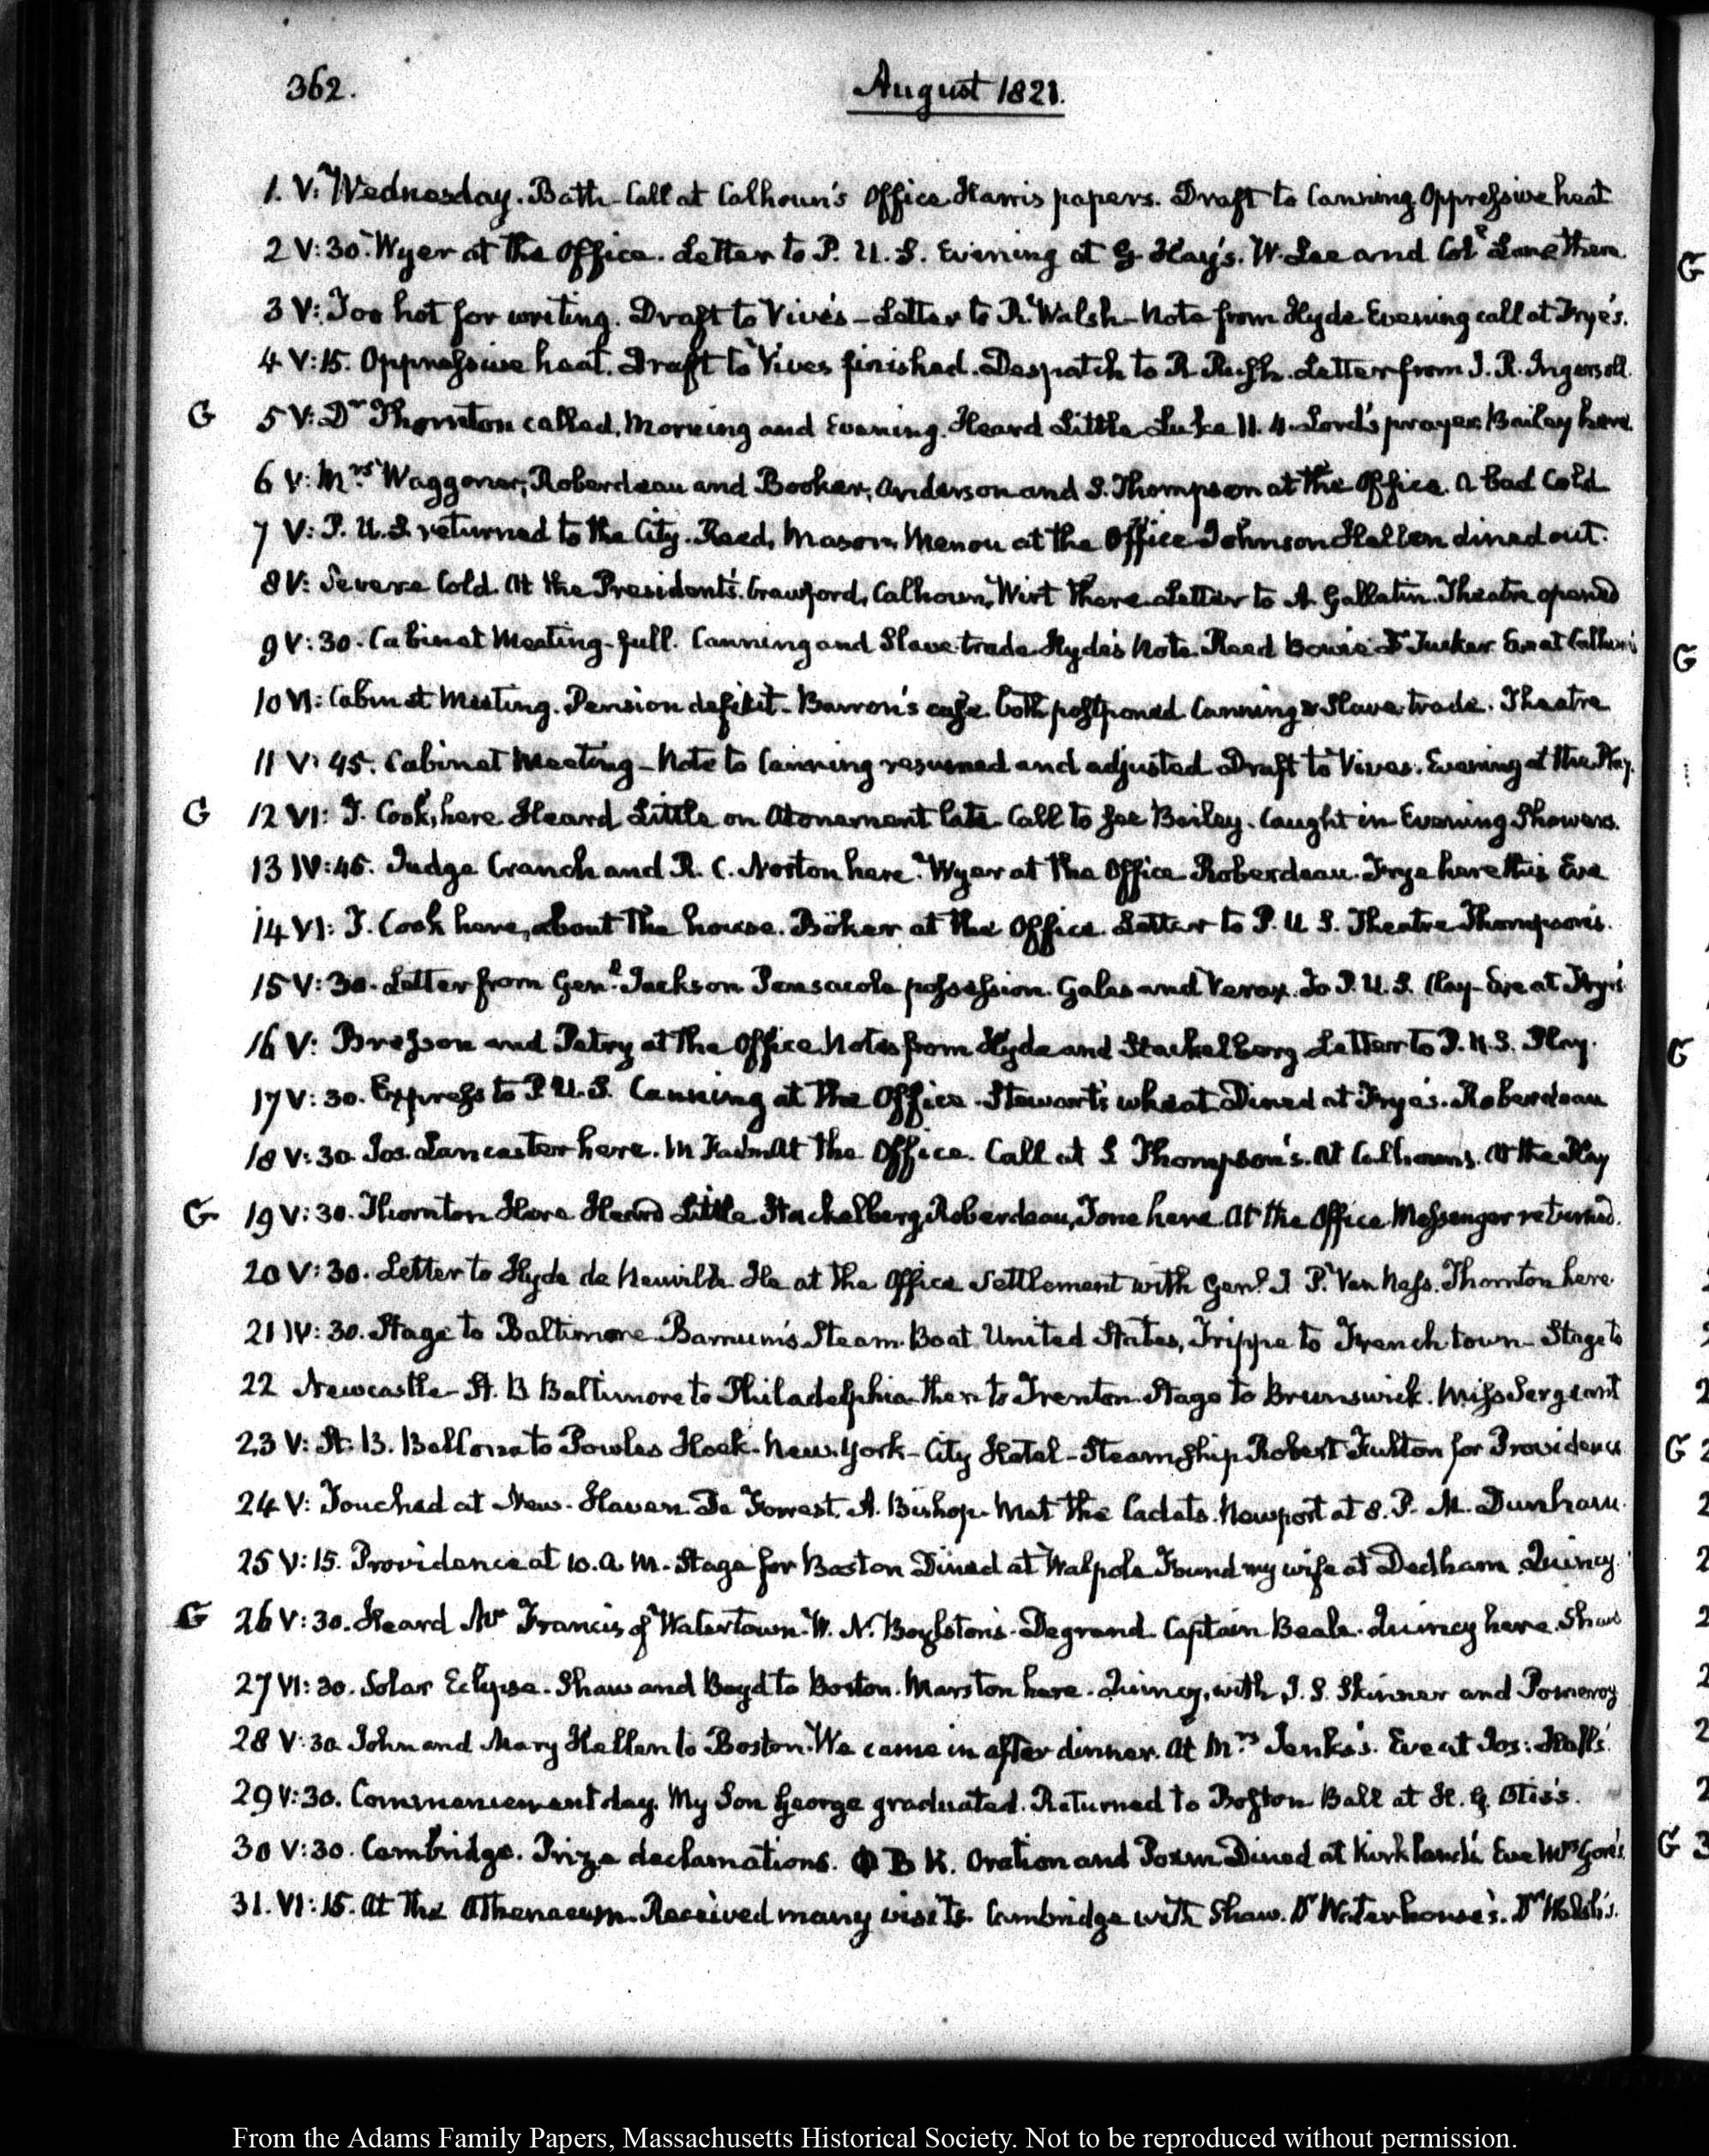 362.
August 1821.
1. V: Wednesday. Bath - Call at Calhoun's Office Harris papers. Draft to Canning Oppressive heat
2 V:30. Wyer at the Office. Letter to P. U. S. Evening at G Hay's. W. Lee and Coll Lane there.
3 V: Too hot for writing. Draft to Vivés - Letter to R. Walsh - Note from Hyde Evening call at Frye's.
4 V:15. Oppressive heat. Draft to Vives finished. Despatch to R Rush. Letter from J. R. Ingersoll.
G 5 V: Dr Thornton called, Morning and Evening. Heard Little Luke 11. 4. Lord's prayer Bailey here.
6 V: Mrs Waggoner, Roberdeau and Booker, Anderson and S. Thompson at the Office. A bad Cold
7 V: P. U. S. returned to the City. Reed, Mason, Menou at the Office Johnson Hellen dined out.
8 V: Severe Cold. At the President's. Crawford, Calhoun, Wirt there. Letter to A. Gallatin. Theatre opened
9 V:30. Cabinet Meeting - full. Canning and Slave trade Hyde's Note. Reed Bowie Tucker Eve at Calhoun's
10 VI: Cabinet Meeting. Pension deficit - Barron's case both postponed Canning & Slave trade. Theatre
11 V:45. Cabinet Meeting - Note to Canning resumed and adjusted Draft to Vives. Evening at the Play.
G 12 VI: J. Cook, here Heard Little on Atonement late Call to see Bailey. Caught in Evening Showers.
13 IV:45. Judge Cranch and R. C. Norton here. Wyer at the Office Roberdeau. Frye here this Eve
14 VI: J. Cook here, about the house. Böker at the Office. Letter to P. U S. Theatre Thompson's.
15 V:30. Letter from Genl Jackson Pensacola possession. Gales and Verax. To P. U. S. Clay - Eve at Frye's
16 V: Bresson and Petry at the Office Notes from Hyde and Stackelberg Letter to P. U. S. Play.
17 V:30. Express to P. U. S. Canning at the Office. Stewart's wheat Dined at Frye's. Roberdeau
18 V:30 Jos. Lancaster here. at the Office. Call at S Thompson's. At Calhoun's. At the Play
G 19 V:30. Thornton Here Heard Little Stackelberg, Roberdeau, here At the Office Messenger returned.
20 V:30. Letter to Hyde de Neuville He at the Office Settlement with Genl J. P. Van Ness. Thornton here
21 IV:30. Stage to Baltimore Barnum's Steam Boat United States, Trippe to French town - Stage to
22 Newcastle - St. B Baltimore to Philadelphia then to Trenton Stage to Brunswick. Miss Sergeant
23 V: St. B. Bellona to Powles Hook - New York - City Hotel - Steam Ship Robert Fulton for Providence
24 V: Touched at New-Haven De Forrest, A. Bishop Met the Cadets. Newport at 8. P. M. Dunham.
25 V:15. Providence at 10. A. M. - Stage for Boston Dined at Walpole Found my wife at Dedham. Quincy.
G 26 V:30. Heard Mr Francis of Watertown. W. N. Boylston's. Degrand Captain Beale. Quincy here. Shaw
27 VI:30. Solar Eclypse. Shaw and Boyd to Boston. Marston here. Quincy, with J. S. Skinner and Pomeroy
28 V:30 John and Mary Hellen to Boston. We came in after dinner. At Mrs Jenks's. Eve at Jos: Hall's.
29 V:30. Commencement day. My Son George graduated. Returned to Boston Ball at H. G. Otis's.
30 V:30. Cambridge. Prize declamations. Φ B K. Oration and Poem Dined at Kirkland's Eve Mrs Gore's.
31. VI:15. At the Athenaeum. Received many visits Cambridge with Shaw. Dr Waterhouse's. Dr Welsh's.
G
G
G
G
G
From the Adams Family Papers, Massachusetts Historical Society. Not to be reproduced without permission.